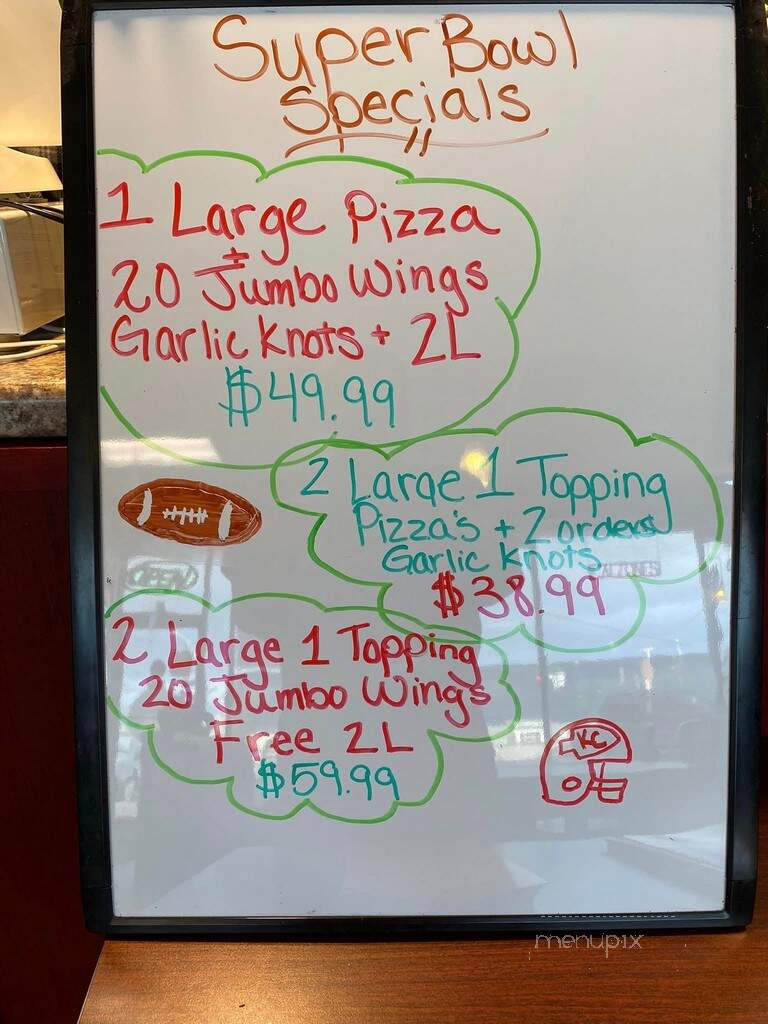 Super Bowl
Specials
1 Large Pizza
+
20 Jumbo Wings
Garlic Knots + 2L
$49.99
2 Large 1 Topping
Pizza's + 2 orders
Garlic Knots
$38.99
OPEN
2 Large 1 Topping
20 Jumbo Wings
Free 2L
$59.99
KC
menupix